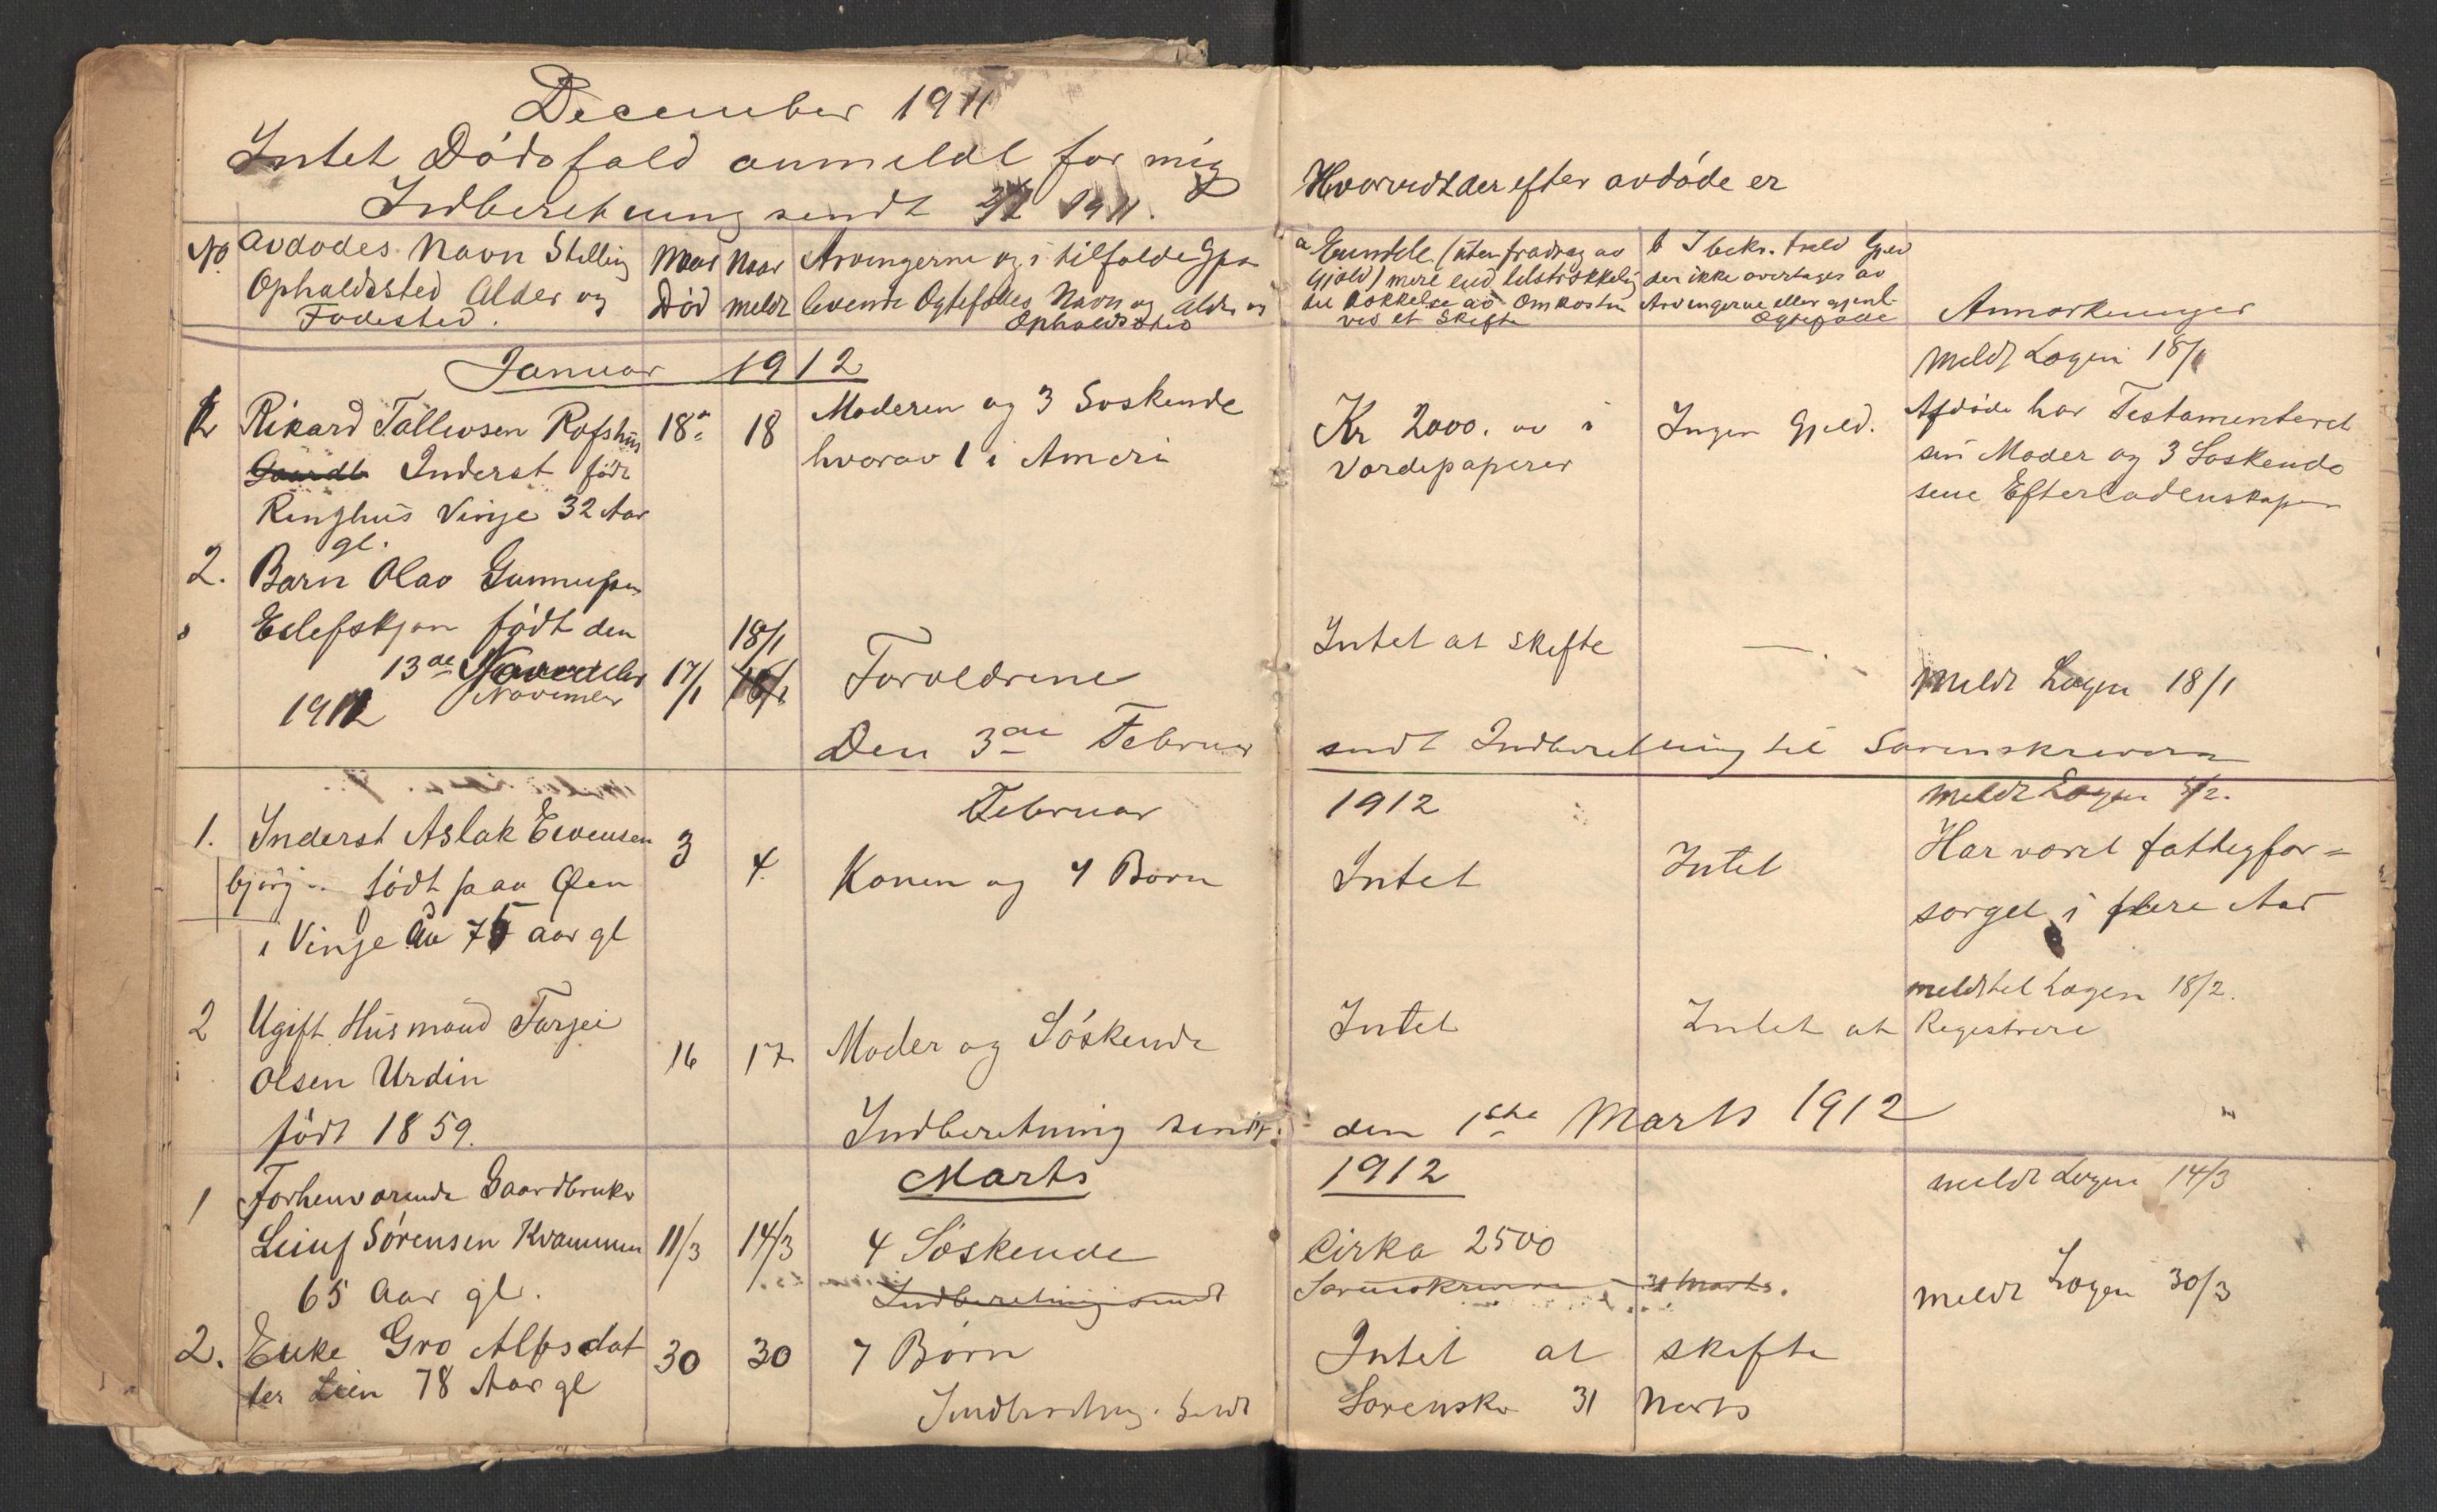 December 1911
Intet Dödsfald anmeldt for mig
Indberetning sendt 1911.
No Avdødes Navn Stilling
Opholdssted Alder og
Fødested.
Naar Død
Naar meldt
Arvingerne og i tilfælde Gjen
levende Ægtefælles Navn og Alder og
Opholdssted
Hvorvidt der efter avdöde er
a Eiendele (uten fradrag av
Gjæld) mere end tilstrækkelig
til Dækkelse av Omkostn
ved et Skifte
b I bekr. fald Gjeld
der ikke overtages av
Arvingerne eller gjenl.
Ægtefælle
Anmærkninger
Januar 1912
Meldt Logen 18/1
1 Rikard Tallevsen Rofshus
Gaardb Inderst födt
Ringhus Vinje 32 Aar
gl.
18de
18
Moderen og 3 Søskende
hvorav 1 i Ameri
Kr 2000. av i
Værdipapirer
Ingen Gjeld.
Afdøde har Testamenteret
sin Moder og 3 Søskende
sine Efterladenskaper
2. Barn Olav Gunnufsen
Eilefstjøn födt den
13de November
November
1911
17/1
18/1
Forældrene
Intet at skifte
—.
Meldt Logen 18/1
Den 3de Februar sendt Indberetning til Sorenskriveren
Februar 1912
meldt Logen 4/2.
1. Inderst Aslak Eivensen
bjørg födt paa Øen
i Vinje 75 aar gl
3
4
Konen og 4 Børn
Intet
Intet
Har været fattigfor=
sørget i flere Aar
meldt til Logen 18/2.
2 Ugift Husmand Tarjei
Olsen Urdin
födt 1859.
16
17
Moder og Söskende
Intet
Intet at Registrere
Indberetning sendt. den 1ste Marts 1912
Marts 1912
meldt Logen 14/3
1 Forhenværende Gaardbruker
Leiuf Sörensen Kvammen
65 Aar gl.
11/3
14/3
4 Söskende
Cirka 2500
Indberetning sendt Sorenskriveren 31 Marts.
meldt Logen 30/3
2. Enke Gro Alfsdat
ter Lien 78 Aar gl
30
30
7 Børn
Intet at skifte
Indberetning. sendt Sorenskr 31 Marts